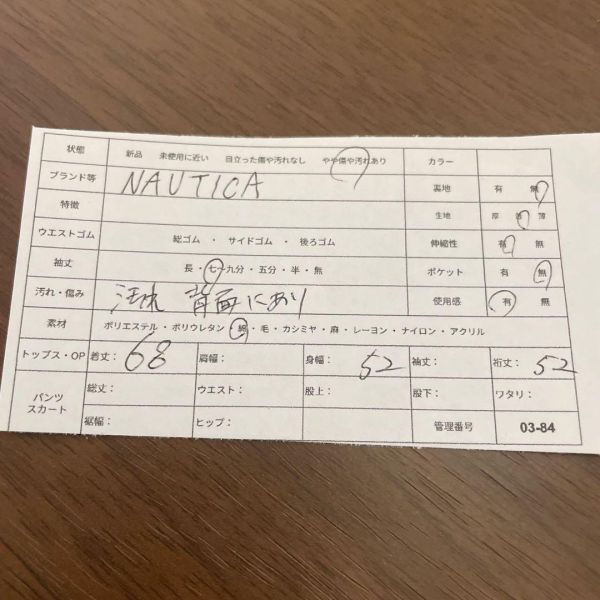 状態 新品 未使用に近い 目立った傷や汚れなし やや傷や汚れあり カラー
ブランド等 NAUTICA 裏地 有 無
特徴 生地 厚 普 薄
ウエストゴム 総ゴム ・ サイドゴム ・ 後ろゴム 伸縮性 有 無
袖丈 長・七・九分・五分・半・無 ポケット 有 無
汚れ・傷み 汚れ 背面にあり 使用感 有 無
素材 ポリエステル・ポリウレタン・綿・毛・カシミヤ・麻・レーヨン・ナイロン・アクリル
トップス・OP 着丈: 68 肩幅: 身幅: 52 袖丈: 裄丈: 52
パンツ スカート 総丈: ウエスト: 股上: 股下: ワタリ:
裾幅: ヒップ: 管理番号 03-84